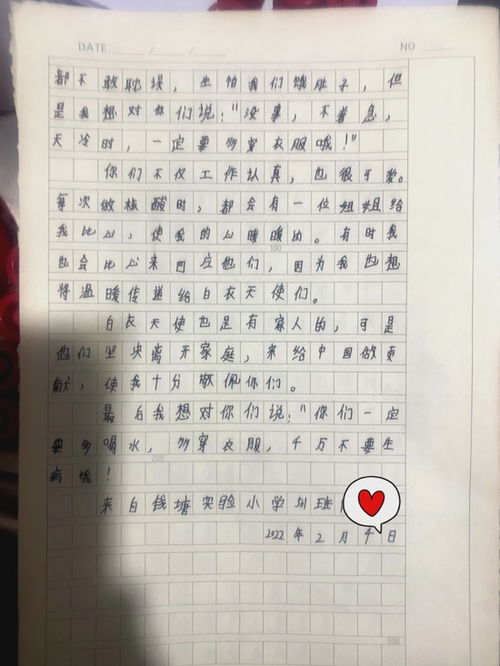 DATE / / NO
都不敢耽误，生怕我们饿肚子，但
是我想对你们说："没事，不着急，
天冷时，一定要多穿衣服哦！"
你们不仅工作认真，也很可爱。
每次做核酸时，都会有一位姐姐给
我比心，使我的心暖暖的。有时我
也会比心来回应他们，因为我也想
100
将温暖传递给白衣天使们。
白衣天使也是有家人的，可是
他们坚决离开家庭，来给中国做贡
献，使我十分敬佩你们。
最后我想对你们说："你们一定
要多喝水，多穿衣服，千万不要生
200
病哦！
来自钱塘实验小学 班
2022年2月4日
300